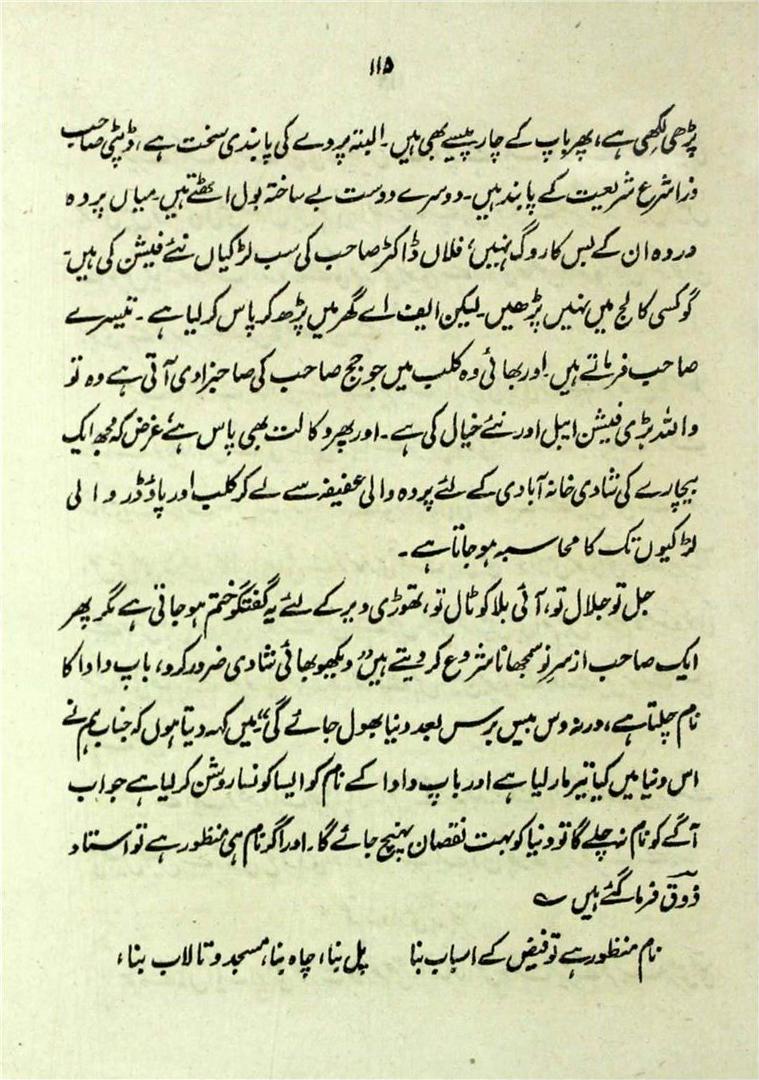 ۱۱۵
پڑھی لکھی ہے، پھر باپ کے چار پیسے بھی ہیں۔ البتہ پردے کی پابندی سخت ہے، ڈپٹی صاحب
ذرا شرع شریعت کے پابند ہیں۔ دوسرے دوست بے ساختہ بول اٹھتے ہیں۔ میاں پردہ
وردہ ان کے بس کا روگ نہیں، فلاں ڈاکٹر صاحب کی سب لڑکیاں نئے فیشن کی ہیں۔
گو کسی کالج میں نہیں پڑھیں۔ لیکن ایف اے گھر میں پڑھ کر پاس کر لیا ہے۔ تیسرے
صاحب فرماتے ہیں۔ اور بھائی وہ کلب میں جو جج صاحب کی صاحبزادی آتی ہے وہ تو
واللہ بڑی فیشن ایبل اور نئے خیال کی ہے۔ اور پھر وکالت بھی پاس ہے، غرض کہ مجھ ایک
بیچارے کی شادی خانہ آبادی کے لئے پردہ والی عفیفہ سے لے کر کلب اور پاؤڈر والی
لڑکیوں تک کا محاسبہ ہو جاتا ہے۔
جل تو جلال تو، آئی بلا کو ٹال تو، تھوڑی دیر کے لئے یہ گفتگو ختم ہو جاتی ہے مگر پھر
ایک صاحب از سرِ نو سمجھانا شروع کر دیتے ہیں” دیکھو بھائی شادی ضرور کرو، باپ دادا کا
نام چلتا ہے، ورنہ دس بیس برس بعد دنیا بھول جائے گی“ میں کہہ دیتا ہوں کہ جناب ہم نے
اس دنیا میں کیا تیر مار لیا ہے اور باپ دادا کے نام کو ایسا کونسا روشن کر لیا ہے جو اب
آگے کو نام نہ چلے گا تو دنیا کو بہت نقصان پہنچ جائے گا۔ اور اگر نام ہی منظور ہے تو استاد
ذوقؔ فرما گئے ہیں ؎
نام منظور ہے تو فیض کے اسباب بنا پل بنا، چاہ بنا، مسجد و تالاب بنا،